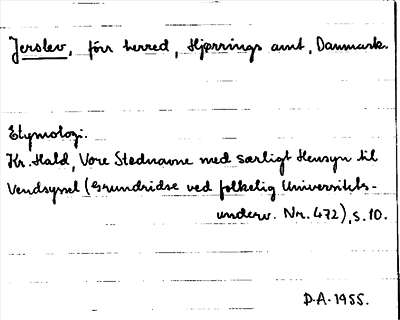 Jerslev, förr herred, Hjørrings amt, Danmark.
Etymologi.
Kr. Hald, Vore Stednavne med særligt Hensyn til
Vendsyssel (Grundridse ved folkelig Universitets-
underv. Nr. 472), s. 10.
D.A. 1955.